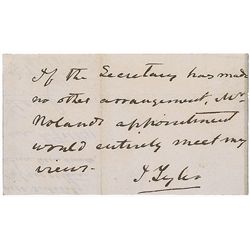 If the Secretary has made
no other arrangement, Mr
Noland's appointment
would entirely meet my
views.
J. Tyler